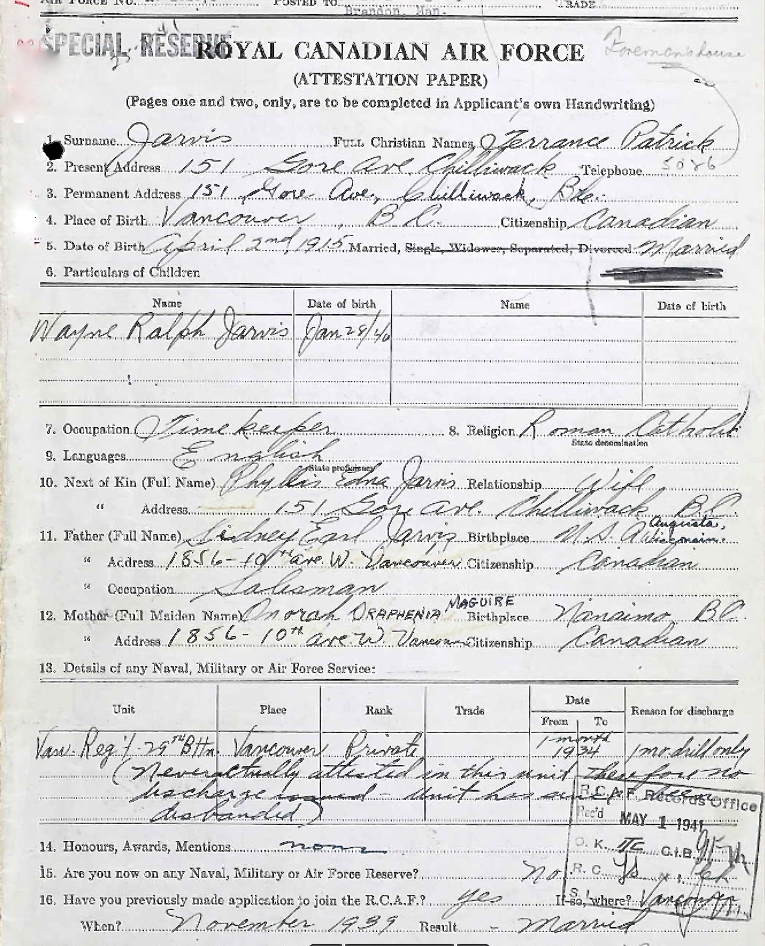 AIR FORCE NO. POSTED TO Brandon, Man. TRADE
SPECIAL RESERVE
ROYAL CANADIAN AIR FORCE
Foreman's house
(ATTESTATION PAPER)
(Pages one and two, only, are to be completed in Applicant's own Handwriting)
1. Surname Jarvis Full Christian Names Terrance Patrick
2. Present Address 151 Gore Ave Chilliwack Telephone 5086
3. Permanent Address 151 Gore Ave, Chilliwack, B.C.
4. Place of Birth Vancouver, B.C. Citizenship Canadian
5. Date of Birth April 2nd, 1915 Married, Single, Widower, Separated, Divorced Married
6. Particulars of Children
Name Date of birth Name Date of birth
Wayne Ralph Jarvis Jan 28/40
7. Occupation Timekeeper 8. Religion Roman Catholic
State denomination
9. Languages English
State proficiency
10. Next of Kin (Full Name) Phyllis Edna Jarvis Relationship Wife
" Address 151 Gore Ave. Chilliwack B.C.
11. Father (Full Name) Sidney Earl Jarvis Birthplace U.S.A. Augusta, Wisconsin.
" Address 1856-10th ave. W. Vancouver Citizenship Canadian
" Occupation Salesman
12. Mother (Full Maiden Name) Onorah DRAPHENIA MAGUIRE Birthplace Nanaimo, B.C.
" Address 1856-10th ave. W. Vancouver Citizenship Canadian
13. Details of any Naval, Military or Air Force Service:
Unit Place Rank Trade Date From To Reason for discharge
Van. Reg't 29th Bttn. Vancouver Private 1 month 1934 1 mo. drill only
(Never actually attested in this unit therefore no
discharge issued - Unit has since been
disbanded)
R.C.A.F. Records Office
Rec'd MAY 1 1941
O.K. C.I.B.
R.C.
14. Honours, Awards, Mentions none
15. Are you now on any Naval, Military or Air Force Reserve? No
16. Have you previously made application to join the R.C.A.F.? yes If so, where? Vancouver
When? November 1939 Result - Married